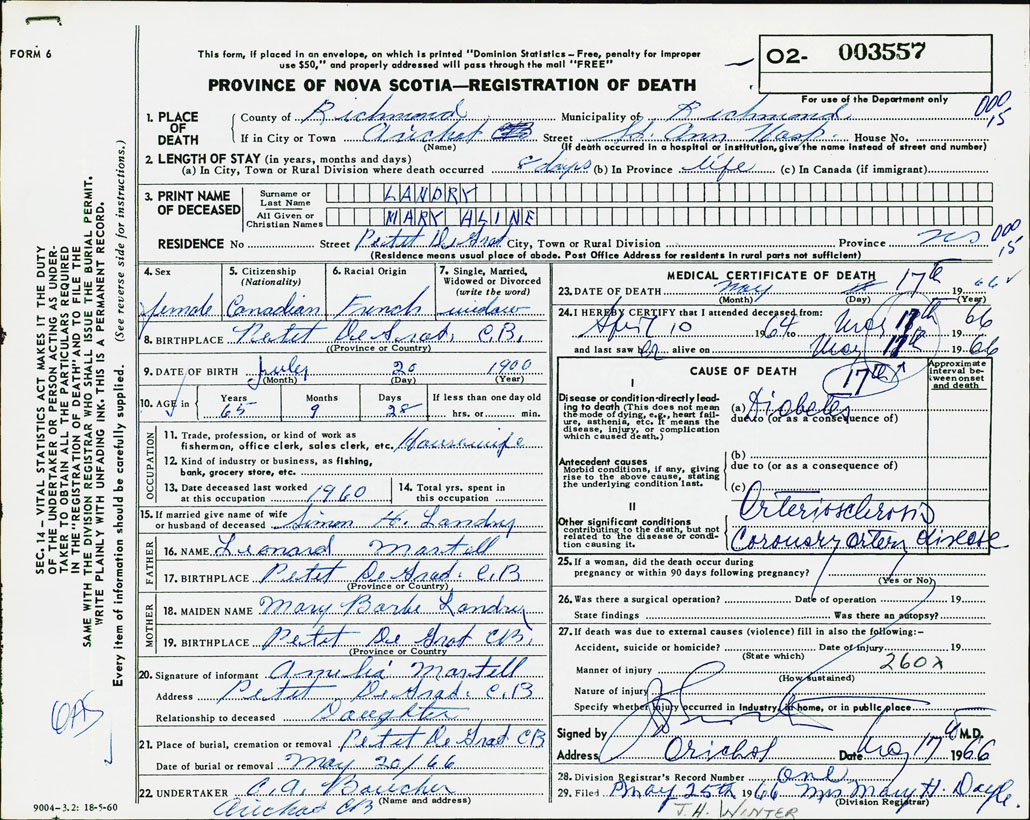 FORM 6
This form, if placed in an envelope, on which is printed "Dominion Statistics – Free, penalty for improper
use $50," and properly addressed will pass through the mail "FREE"
O2- 003557
PROVINCE OF NOVA SCOTIA—REGISTRATION OF DEATH
For use of the Department only
000
15
1. PLACE OF DEATH
County of Richmond Municipality of Richmond
If in City or Town Arichat Street St. Ann Hosp. House No.
(Name) (If death occurred in a hospital or institution, give the name instead of street and number)
2. LENGTH OF STAY (in years, months and days)
(a) In City, Town or Rural Division where death occurred 8 days (b) In Province life (c) In Canada (if immigrant)
3. PRINT NAME OF DECEASED
Surname or Last Name LANDRY
All Given or Christian Names MARY ALINE
RESIDENCE No Street Petit De Grat City, Town or Rural Division Province NS
000
15
(Residence means usual place of abode. Post Office Address for residents in rural parts not sufficient)
4. Sex
female
5. Citizenship
(Nationality)
Canadian
6. Racial Origin
French
7. Single, Married, Widowed or Divorced
(write the word)
widow
8. BIRTHPLACE Petit De Grat, C.B.
(Province or Country)
9. DATE OF BIRTH July 20 1900
(Month) (Day) (Year)
10. AGE in Years Months Days If less than one day old
65 9 28 hrs. or min.
OCCUPATION
11. Trade, profession, or kind of work as
fisherman, office clerk, sales clerk, etc. Housewife
12. Kind of industry or business, as fishing,
bank, grocery store, etc.
13. Date deceased last worked
at this occupation 1960
14. Total yrs. spent in
this occupation
15. If married give name of wife
or husband of deceased Simon H. Landry
FATHER
16. NAME Leonard Martell
17. BIRTHPLACE Petit De Grat. C.B
(Province or Country)
MOTHER
18. MAIDEN NAME Mary Barbe Landry
19. BIRTHPLACE Petit De Grat CB.
(Province or Country)
20. Signature of informant Amelia Martell
Address Petit De Grat. C.B
Relationship to deceased Daughter
21. Place of burial, cremation or removal Petit De Grat CB
Date of burial or removal May 20/66
22. UNDERTAKER C.A. Boucher
(Name and address)
Arichat CB
MEDICAL CERTIFICATE OF DEATH
23. DATE OF DEATH May 17th 1966
(Month) (Day) (Year)
24. I HEREBY CERTIFY that I attended deceased from:
April 10 1964 May 17th 66
and last saw er alive on May 17th 1966
17th
CAUSE OF DEATH
Approximate interval between onset and death
I
Disease or condition directly leading to death (This does not mean the mode of dying, e.g., heart failure, asthenia, etc. It means the disease, injury, or complication which caused death.)
(a) Diabetes
due to (or as a consequence of)
Antecedent causes
Morbid conditions, if any, giving rise to the above cause, stating the underlying condition last.
(b)
due to (or as a consequence of)
(c)
II
Other significant conditions
contributing to the death, but not related to the disease or condition causing it.
Arteriosclerosis
Coronary artery disease
25. If a woman, did the death occur during
pregnancy or within 90 days following pregnancy?
(Yes or No)
26. Was there a surgical operation? Date of operation 19
State findings Was there an autopsy?
27. If death was due to external causes (violence) fill in also the following:–
Accident, suicide or homicide? Date of injury 19
(State which)
260x
Manner of injury
(How sustained)
Nature of injury
Specify whether injury occurred in industry, in home, or in public place
Signed by M.D.
Address Arichat Date May 17 1966
28. Division Registrar's Record Number One
29. Filed May 25th 1966 Mrs Mary H. Doyle
(Division Registrar)
J.H. WINTER
SEC. 14 – VITAL STATISTICS ACT MAKES IT THE DUTY
OF THE UNDERTAKER OR PERSON ACTING AS UNDER-
TAKER TO OBTAIN ALL THE PARTICULARS REQUIRED
IN THE "REGISTRATION OF DEATH" AND TO FILE THE
SAME WITH THE DIVISION REGISTRAR WHO SHALL ISSUE THE BURIAL PERMIT.
WRITE PLAINLY WITH UNFADING INK. THIS IS A PERMANENT RECORD.
Every item of information should be carefully supplied. (See reverse side for instructions.)
9004-3.2: 18-5-60